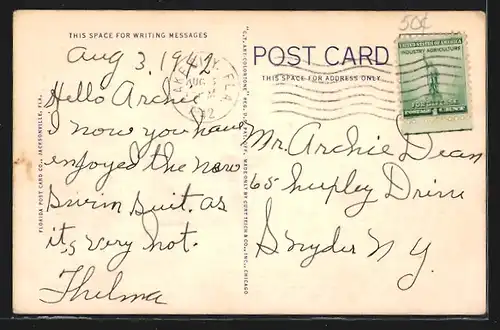 50¢
THIS SPACE FOR WRITING MESSAGES
Aug 3, 1942
Hello Archie
I now you have
enjoyed the new
swim suit. as
it,s very hot.
Thelma
FLORIDA POST CARD CO., JACKSONVILLE, FLA.
"C.T. ART-COLORTONE" REG. U.S. PAT. OFF. MADE ONLY BY CURT TEICH & CO., INC., CHICAGO
POST CARD
THIS SPACE FOR ADDRESS ONLY
FLA
AUG
UNITED STATES OF AMERICA
INDUSTRY AGRICULTURE
FOR DEFENSE
POSTAGE 1 CENT
Mr. Archie Dean
65 Drive
Snyder N Y.